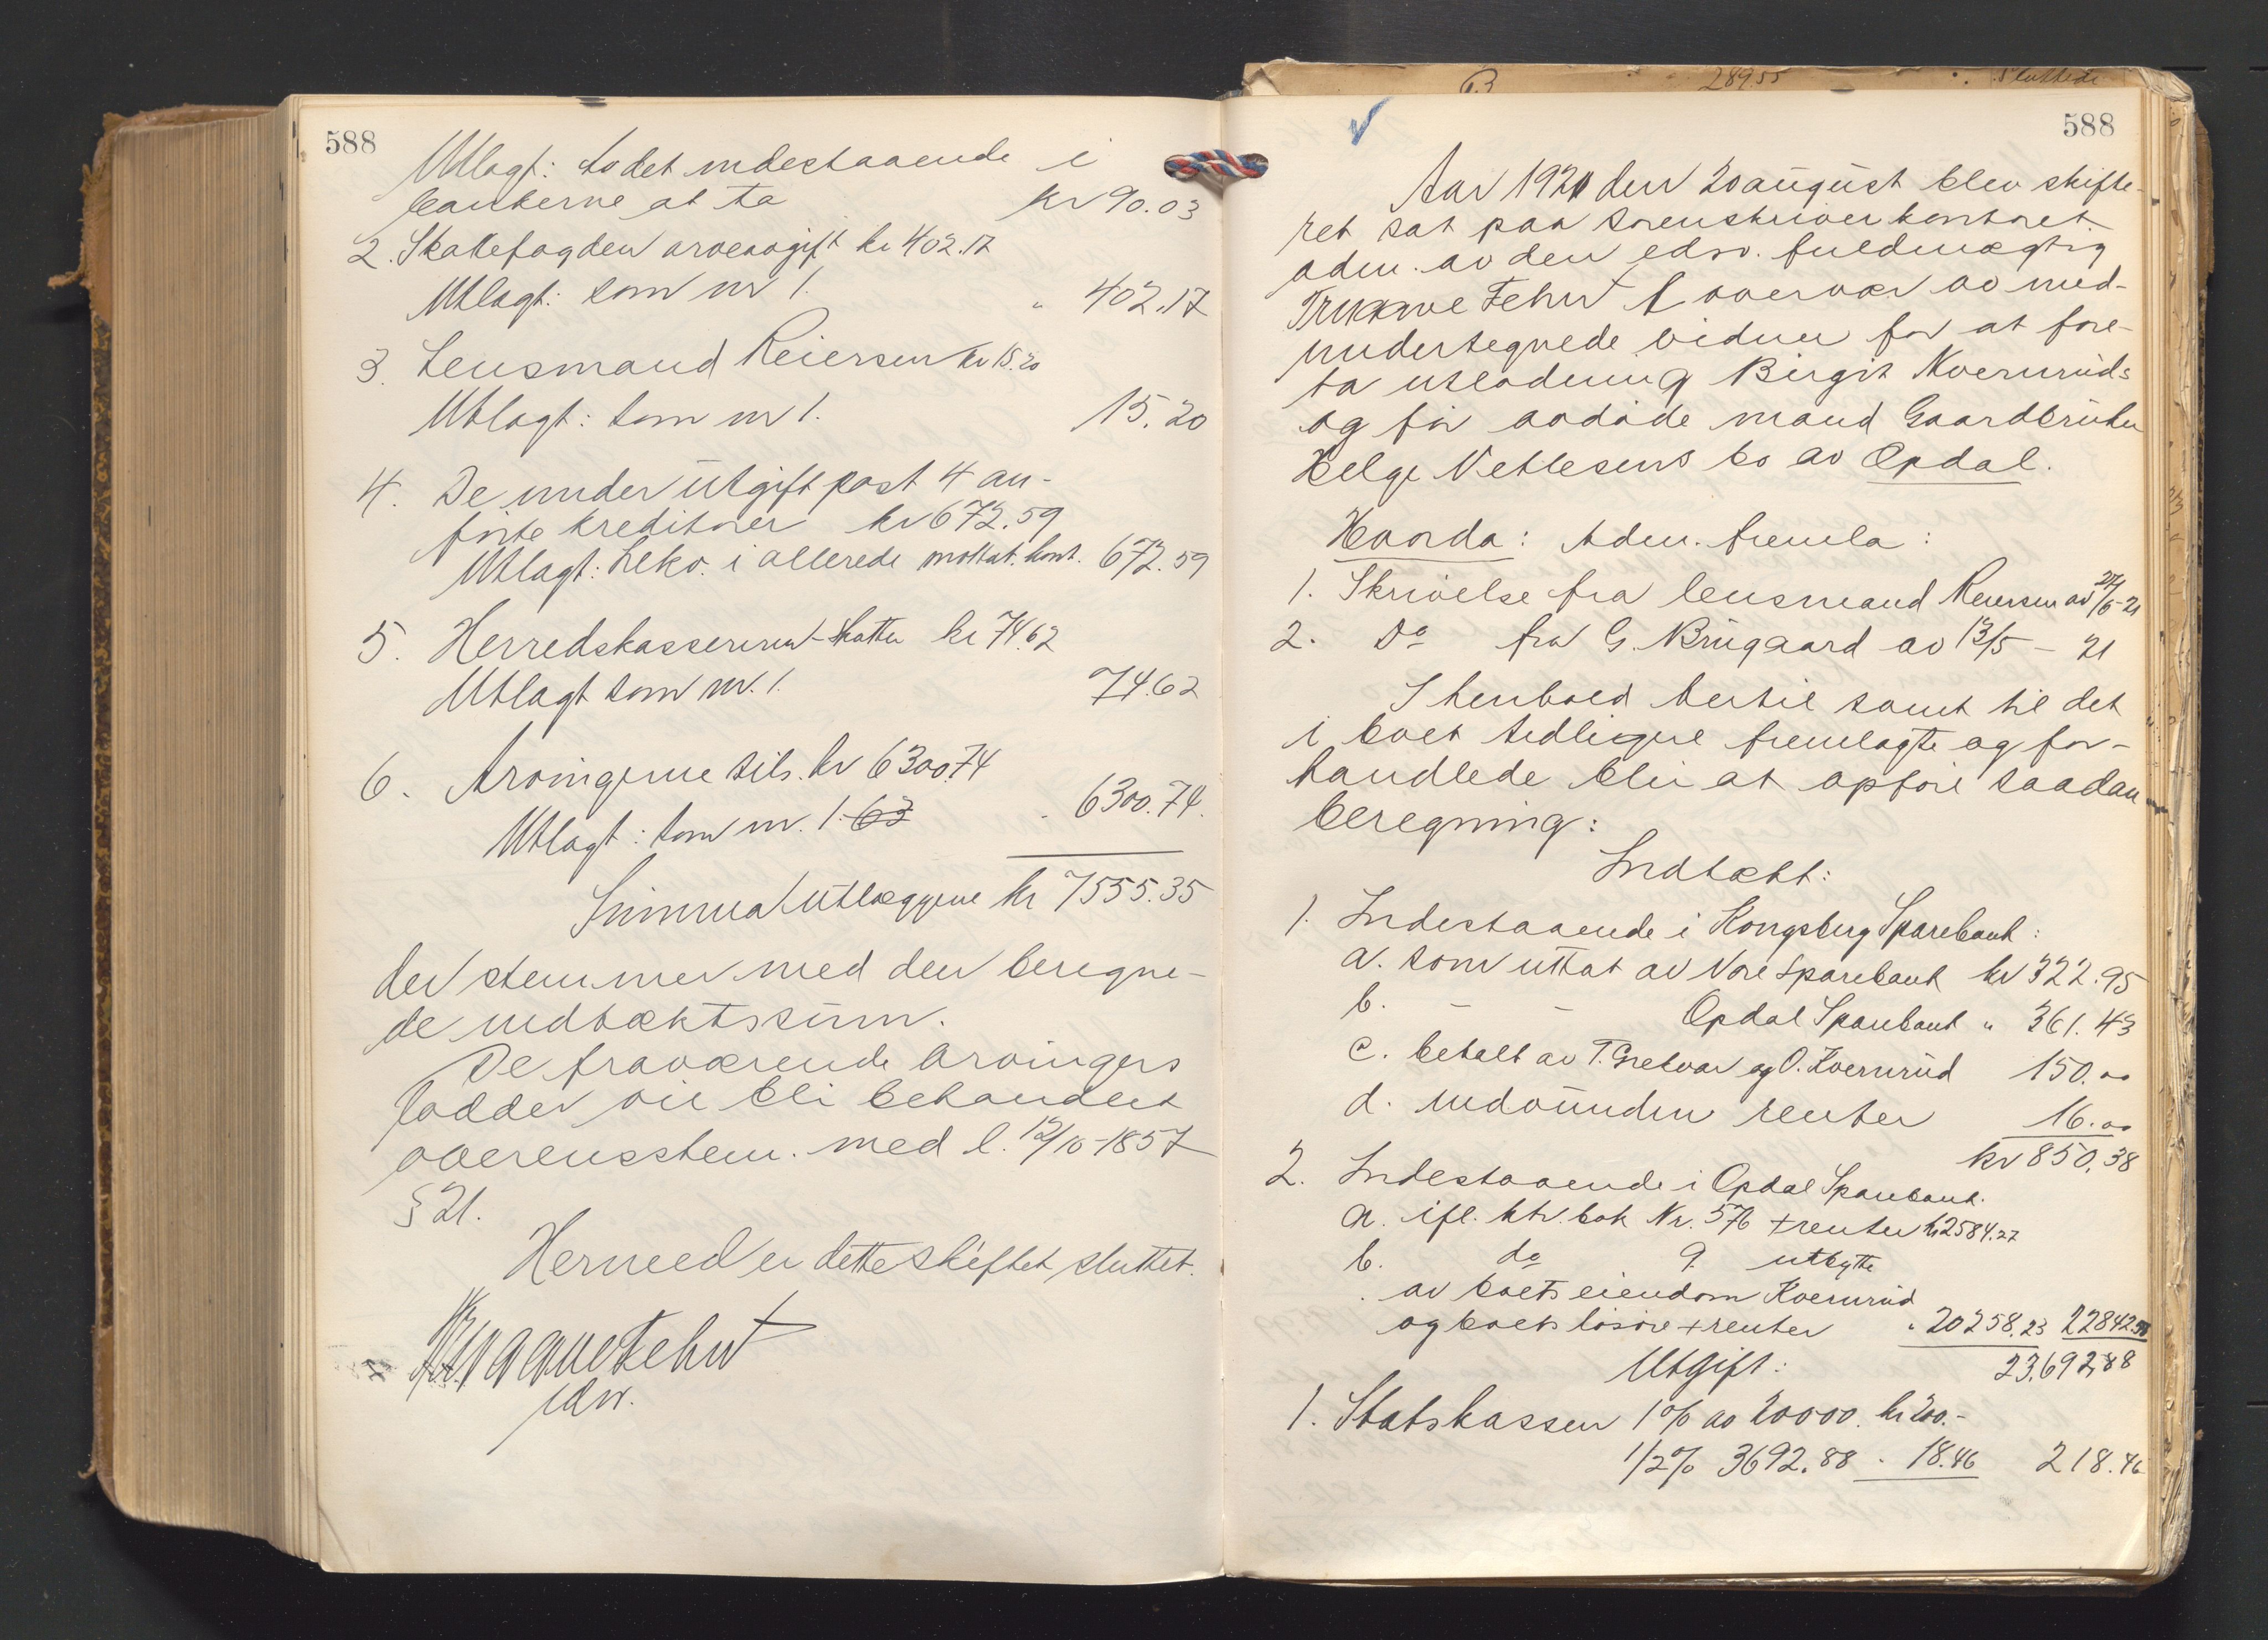 588
Utlagt: to det indestaaende i
bankerne at ta kr 90.03
2. Skattefogden arveavgift kr 402.17
Utlagt: som nr 1. " 402.17
3. Lensmand Reiersen kr 15.20
Utlagt: som nr 1. 15.20
4. De under utgift post 4 an-
førte kreditorer kr 672.59
Utlagt: i allerede mottat. kont. 672.59
5. Herredskassereren - skatter kr 74.62
Utlagt som nr. 1. 74.62
6. Arvingerne tils. kr 6300.74
Utlagt: som nr. 1. 63 . 6300.74.
Summa utlæggene kr 7555.35
der stemmer med den beregne-
de indtæktssum.
De fraværende arvingers
lodder vil bli behandlet
overensstem. med l. 12/10-1857
§ 21.
Hermed er dette skiftet sluttet.
Trygve Fehn
edsv.
63 28955 sluttede
588
Aar 1921 den 20 august blev skifte-
ret sat paa sorenskriverkontoret
adm. av den edsv. fuldmægtig
Trygve Fehn i overvær av med-
undertegnede vidner for at fore-
ta utlodning Birgit Kvernruds
og før avdøde mand Gaardbruker
Helge Netlesens bo av Opdal.
Hvorda: Adm. fremla:
1. Skrivelse fra lensmand Reiersen av 24/6-21
2. Do fra G. Brugaard av 13/5 - 21
I henhold hertil samt til det
i boet tidligere fremlagte og for-
handlede blir at opføre saadan
beregning:
Indtækt:
1. Indestaaende i Kongsberg Sparebank:
a. som uttat av Nore Sparebank kr 322.95
b. - - Opdal Sparebank " 361.43
c. betalt av T. Gretvar og O. Kvernrud 150.00
d. indvundne renter 16.00
kr 850.38
2. Indestaaende i Opdal Sparebank.
a. ifl. ktr. bok Nr. 576 + renter kr 2584.27
b. do 9. utbytte
av boets eiendom Kvernrud
og boets løsøre + renter " 20258.23 22842.50
23.692,88
Utgift:
1. Statskassen 1% av 20000. kr 200.-
1/2% 3692.88 . 18.46 218.46